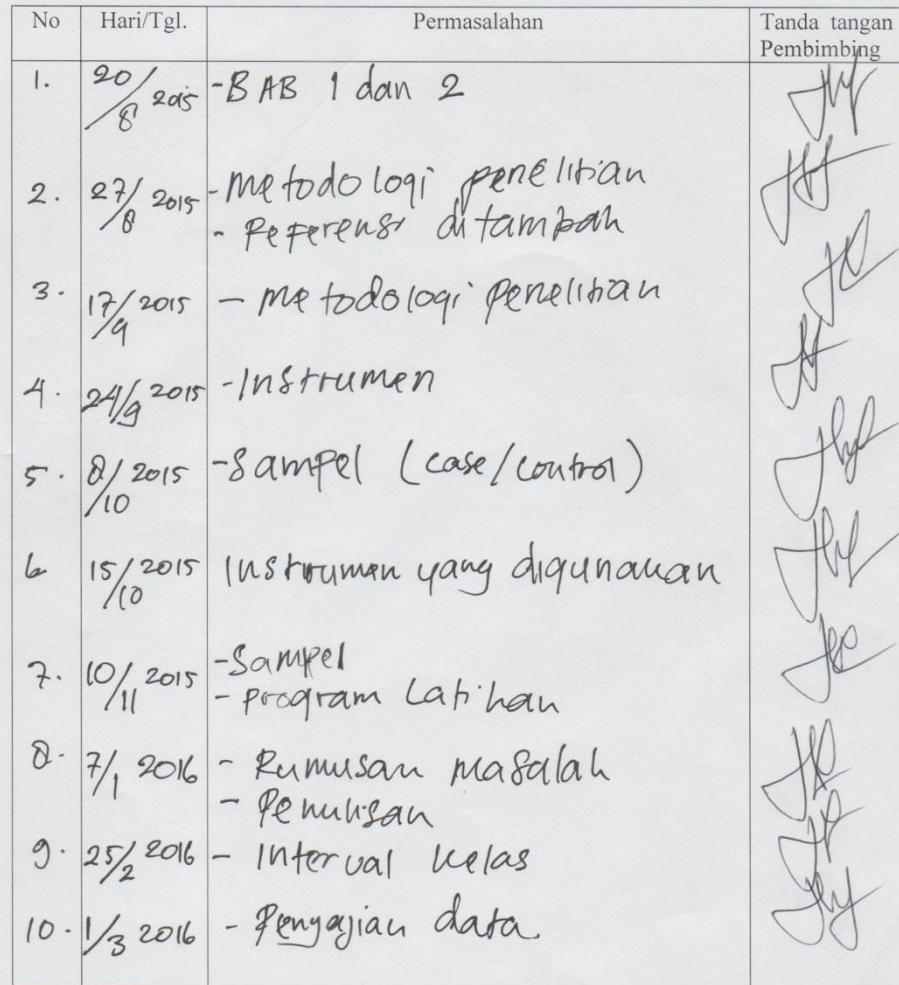 No Hari/Tgl. Permasalahan Tanda tangan Pembimbing
1. 20/8 2015 -BAB 1 dan 2
2. 27/8 2015 -Metodologi penelitian
- Referensi ditambah
3. 17/9 2015 - Metodologi penelitian
4. 24/9 2015 -Instrumen
5. 8/10 2015 -Sampel (case/control)
6 15/10 2015 Instrumen yang digunakan
7. 10/11 2015 -Sampel
- program Latihan
8. 7/1 2016 - Rumusan masalah
- Penulisan
9. 25/2 2016 - Interval kelas
10. 1/3 2016 - Penyajian data